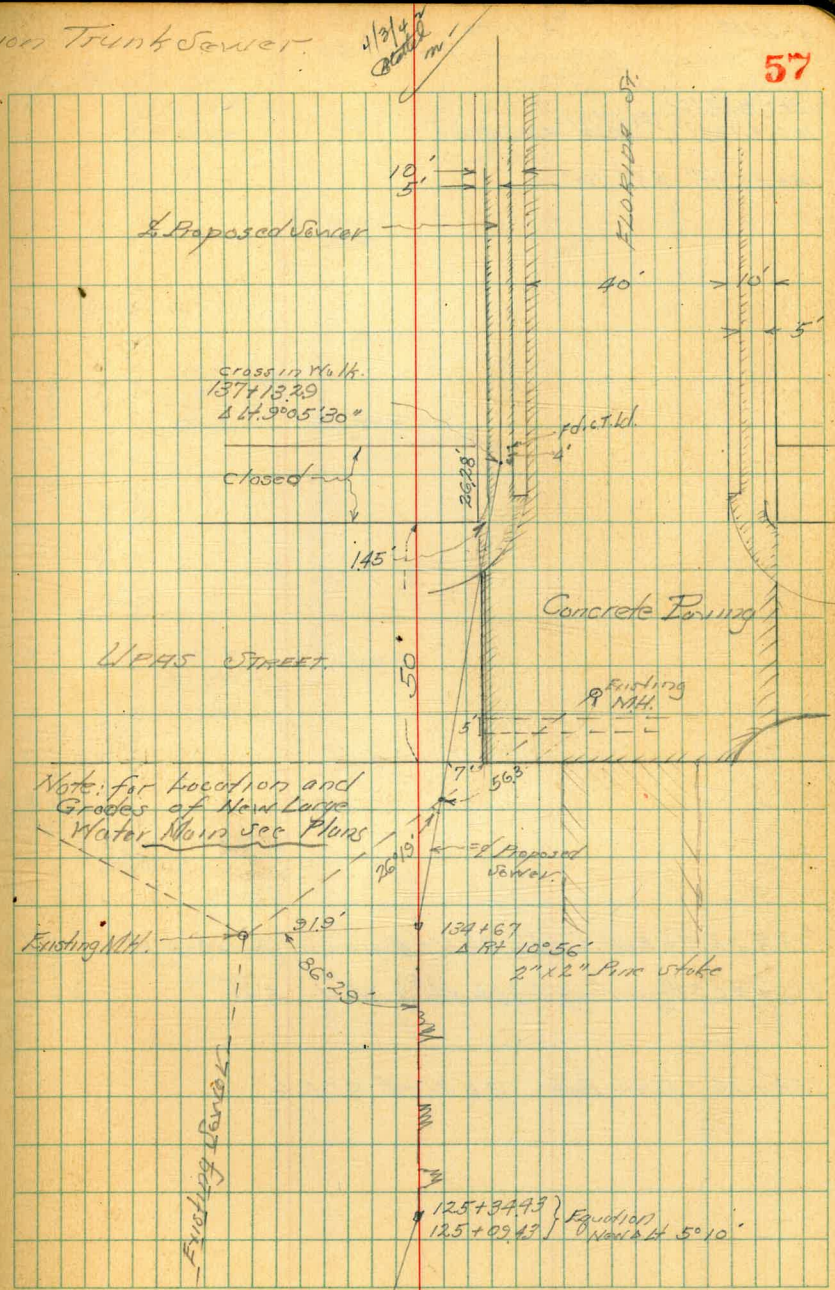 on Trunk Sewer.
4/3/42
57
FLORIDA St.
10'
5'
℄ Proposed Sewer
40'
10'
5'
cross in Walk.
137+13.29
Δ Lt. 9°05'30"
fd. c.T. Ld.
4'
closed
26.28'
1.45'
Concrete Paving
UPAS STREET.
50'
Existing
M.H.
5'
7'
56.3
Note: for Location and
Grades of New Large
Water Main see Plans
26°19'
℄ Proposed
Sewer.
Existing M.H.
91.9'
134+67
Δ Rt 10°56'
2"x2" Pine stake
86°29'
Existing Sewer
125+34.43 } Equation
125+09.43 } New Δ Lt 5°10'